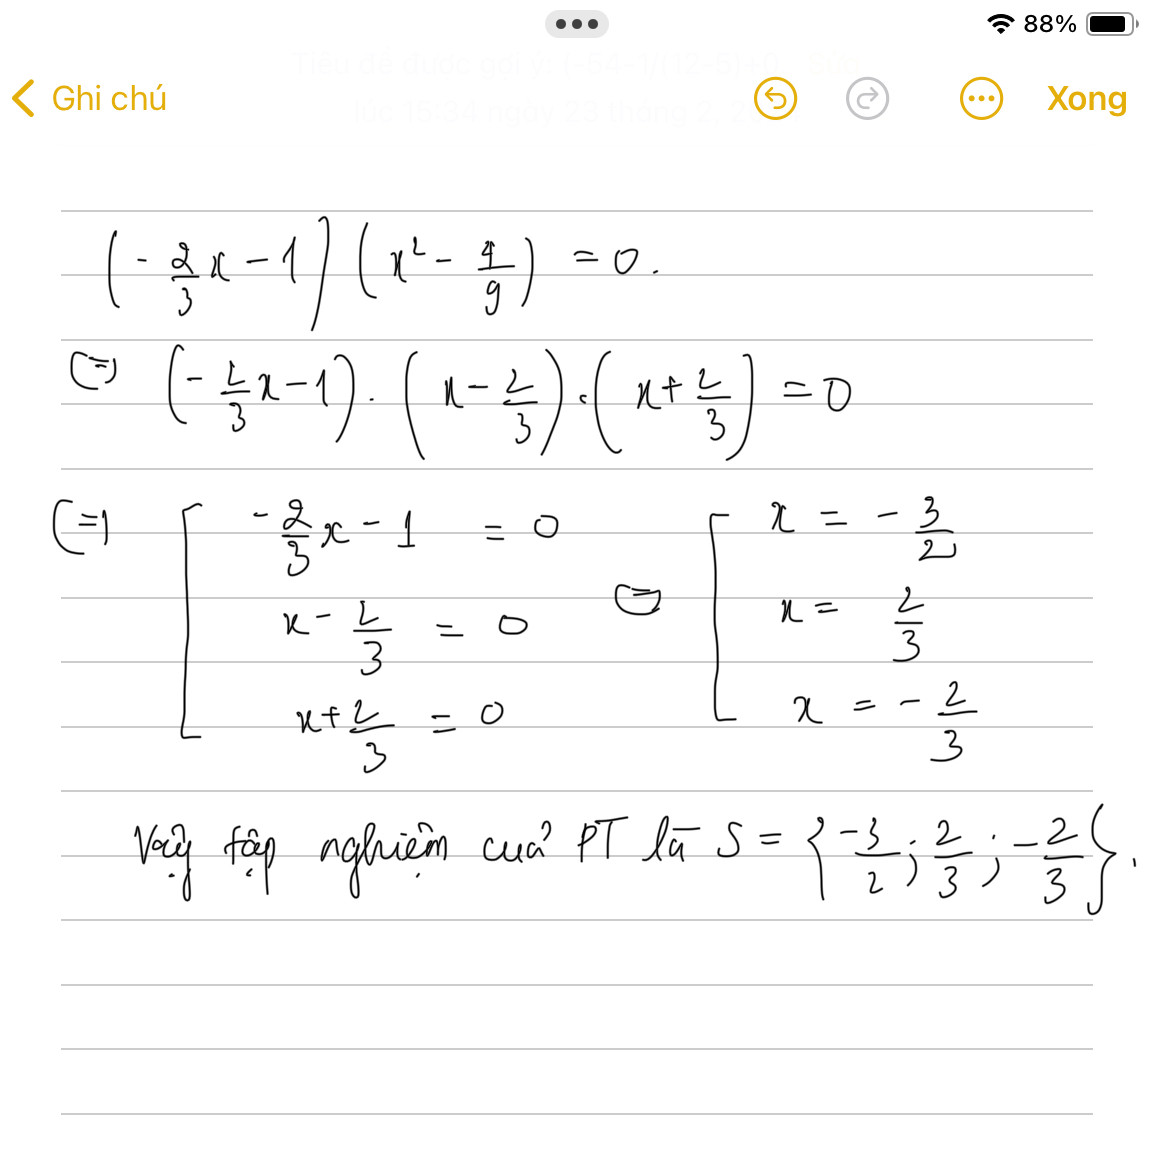 88%
Ghi chú Xong
(-2/3x - 1)(x² - 4/9) = 0.
(=) (-2/3x - 1).(x - 2/3).(x + 2/3) = 0
(=) [ -2/3x - 1 = 0 (=) [ x = -3/2
x - 2/3 = 0 x = 2/3
x + 2/3 = 0 x = -2/3
Vậy tập nghiệm của PT là S = {-3/2; 2/3; -2/3}.